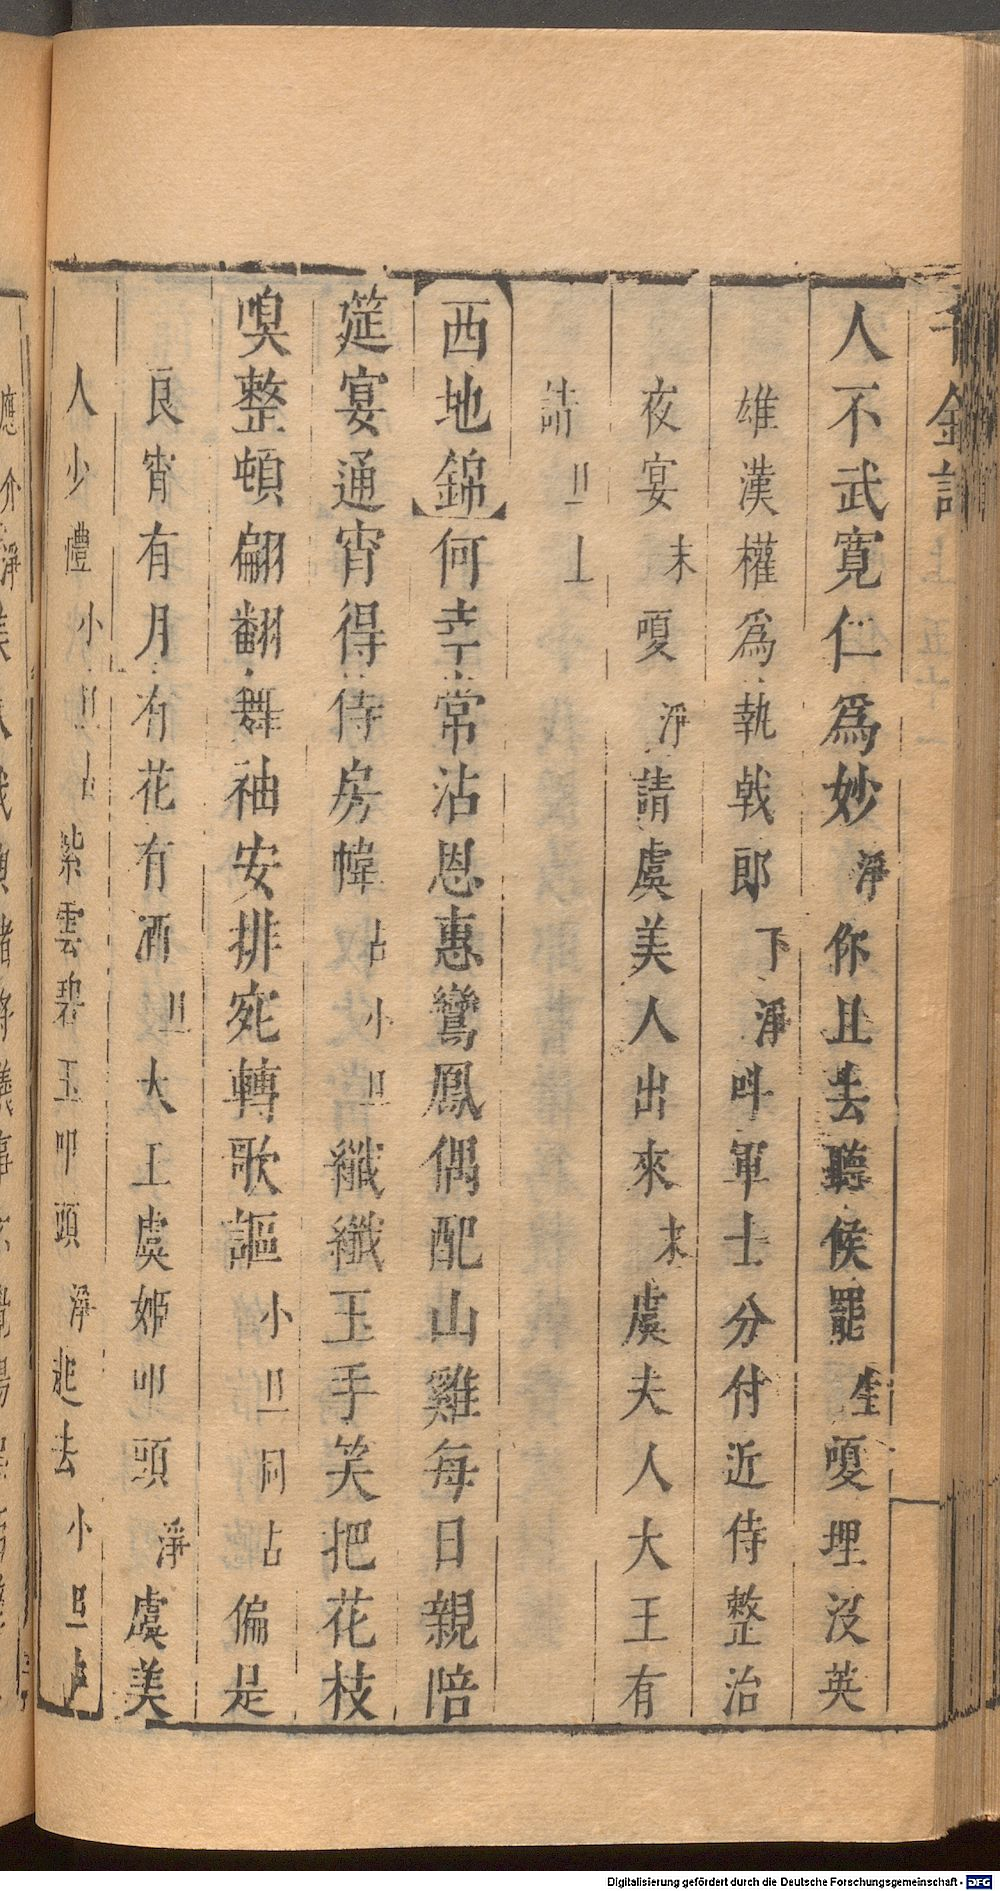 千金記
上 五十一
人不武寬仁爲妙淨你且去聽候罷生嗄埋沒英
雄漢權爲執戟郎下淨叫軍士分付近侍整治
夜宴末嗄淨請虞美人出來末虞夫人大王有
請旦上
西地錦何幸常沾恩惠鸞鳳偶配山雞每日親陪
筵宴通宵得侍房幃占小旦纖纖玉手笑把花枝
嗅整頓翩翻舞袖安排宛轉歌謳小旦同占偏是
良宵有月有花有酒旦大王虞姬叩頭淨虞美
人少禮小旦占紫雲碧玉叩頭淨起去小旦占
Digitalisierung gefördert durch die Deutsche Forschungsgemeinschaft - DFG